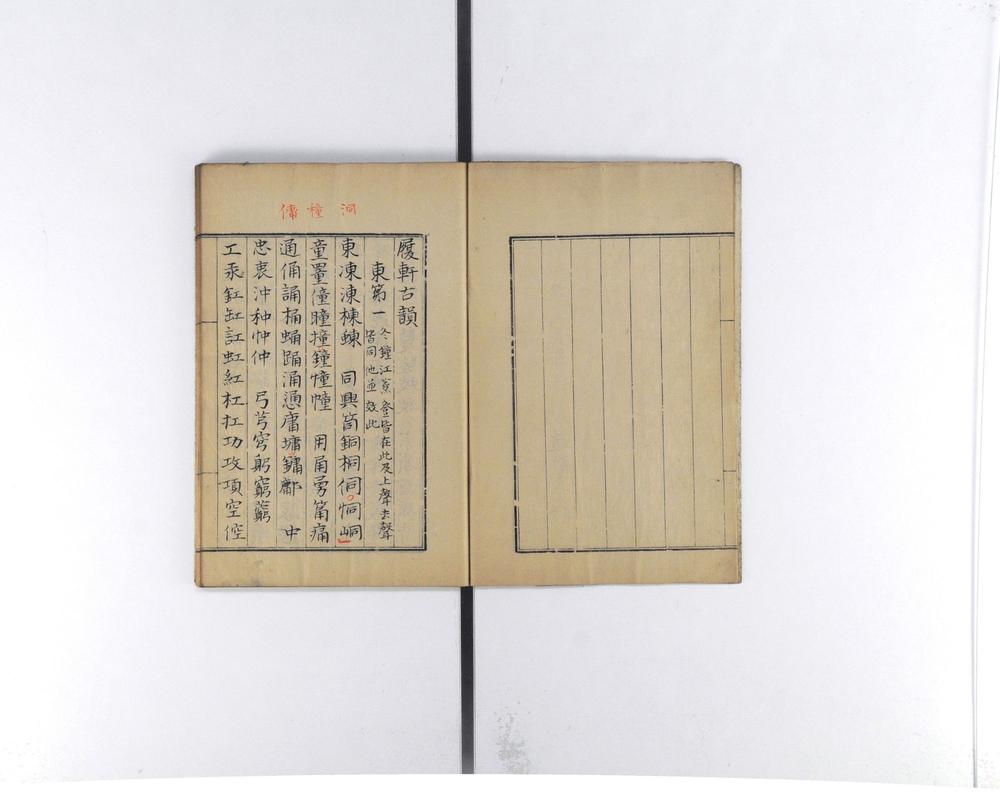 洞 橦 傭
履軒古韻
東第一
冬鐘江蒸登皆在此及上聲去聲
皆同他並效此
東凍涷棟蝀 同興筒銅桐侗恫峒
童量僮瞳撞鐘憧幢 用甬勇筩痛
通俑誦桶蛹踊涌慂庸墉鏞鄘 中
忠衷沖种忡仲 弓芎穹躬窮藭
工汞釭缸訌虹紅杠扛功攻項空倥